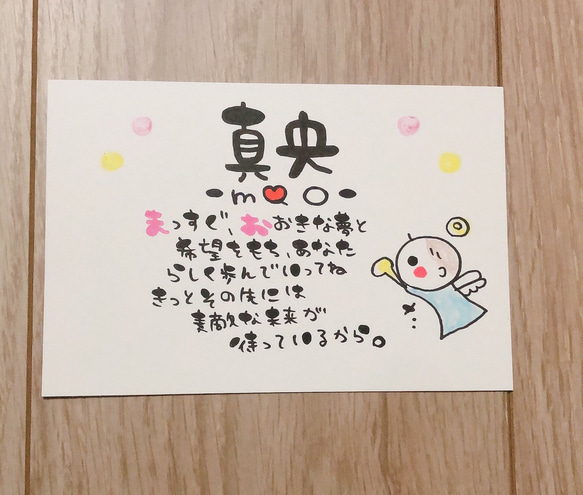 真央
-mao-
まっすぐ、おおきな夢と
希望をもち、あなた
らしく歩んでいってね
きっとその先には
素敵な未来が
待っているから。